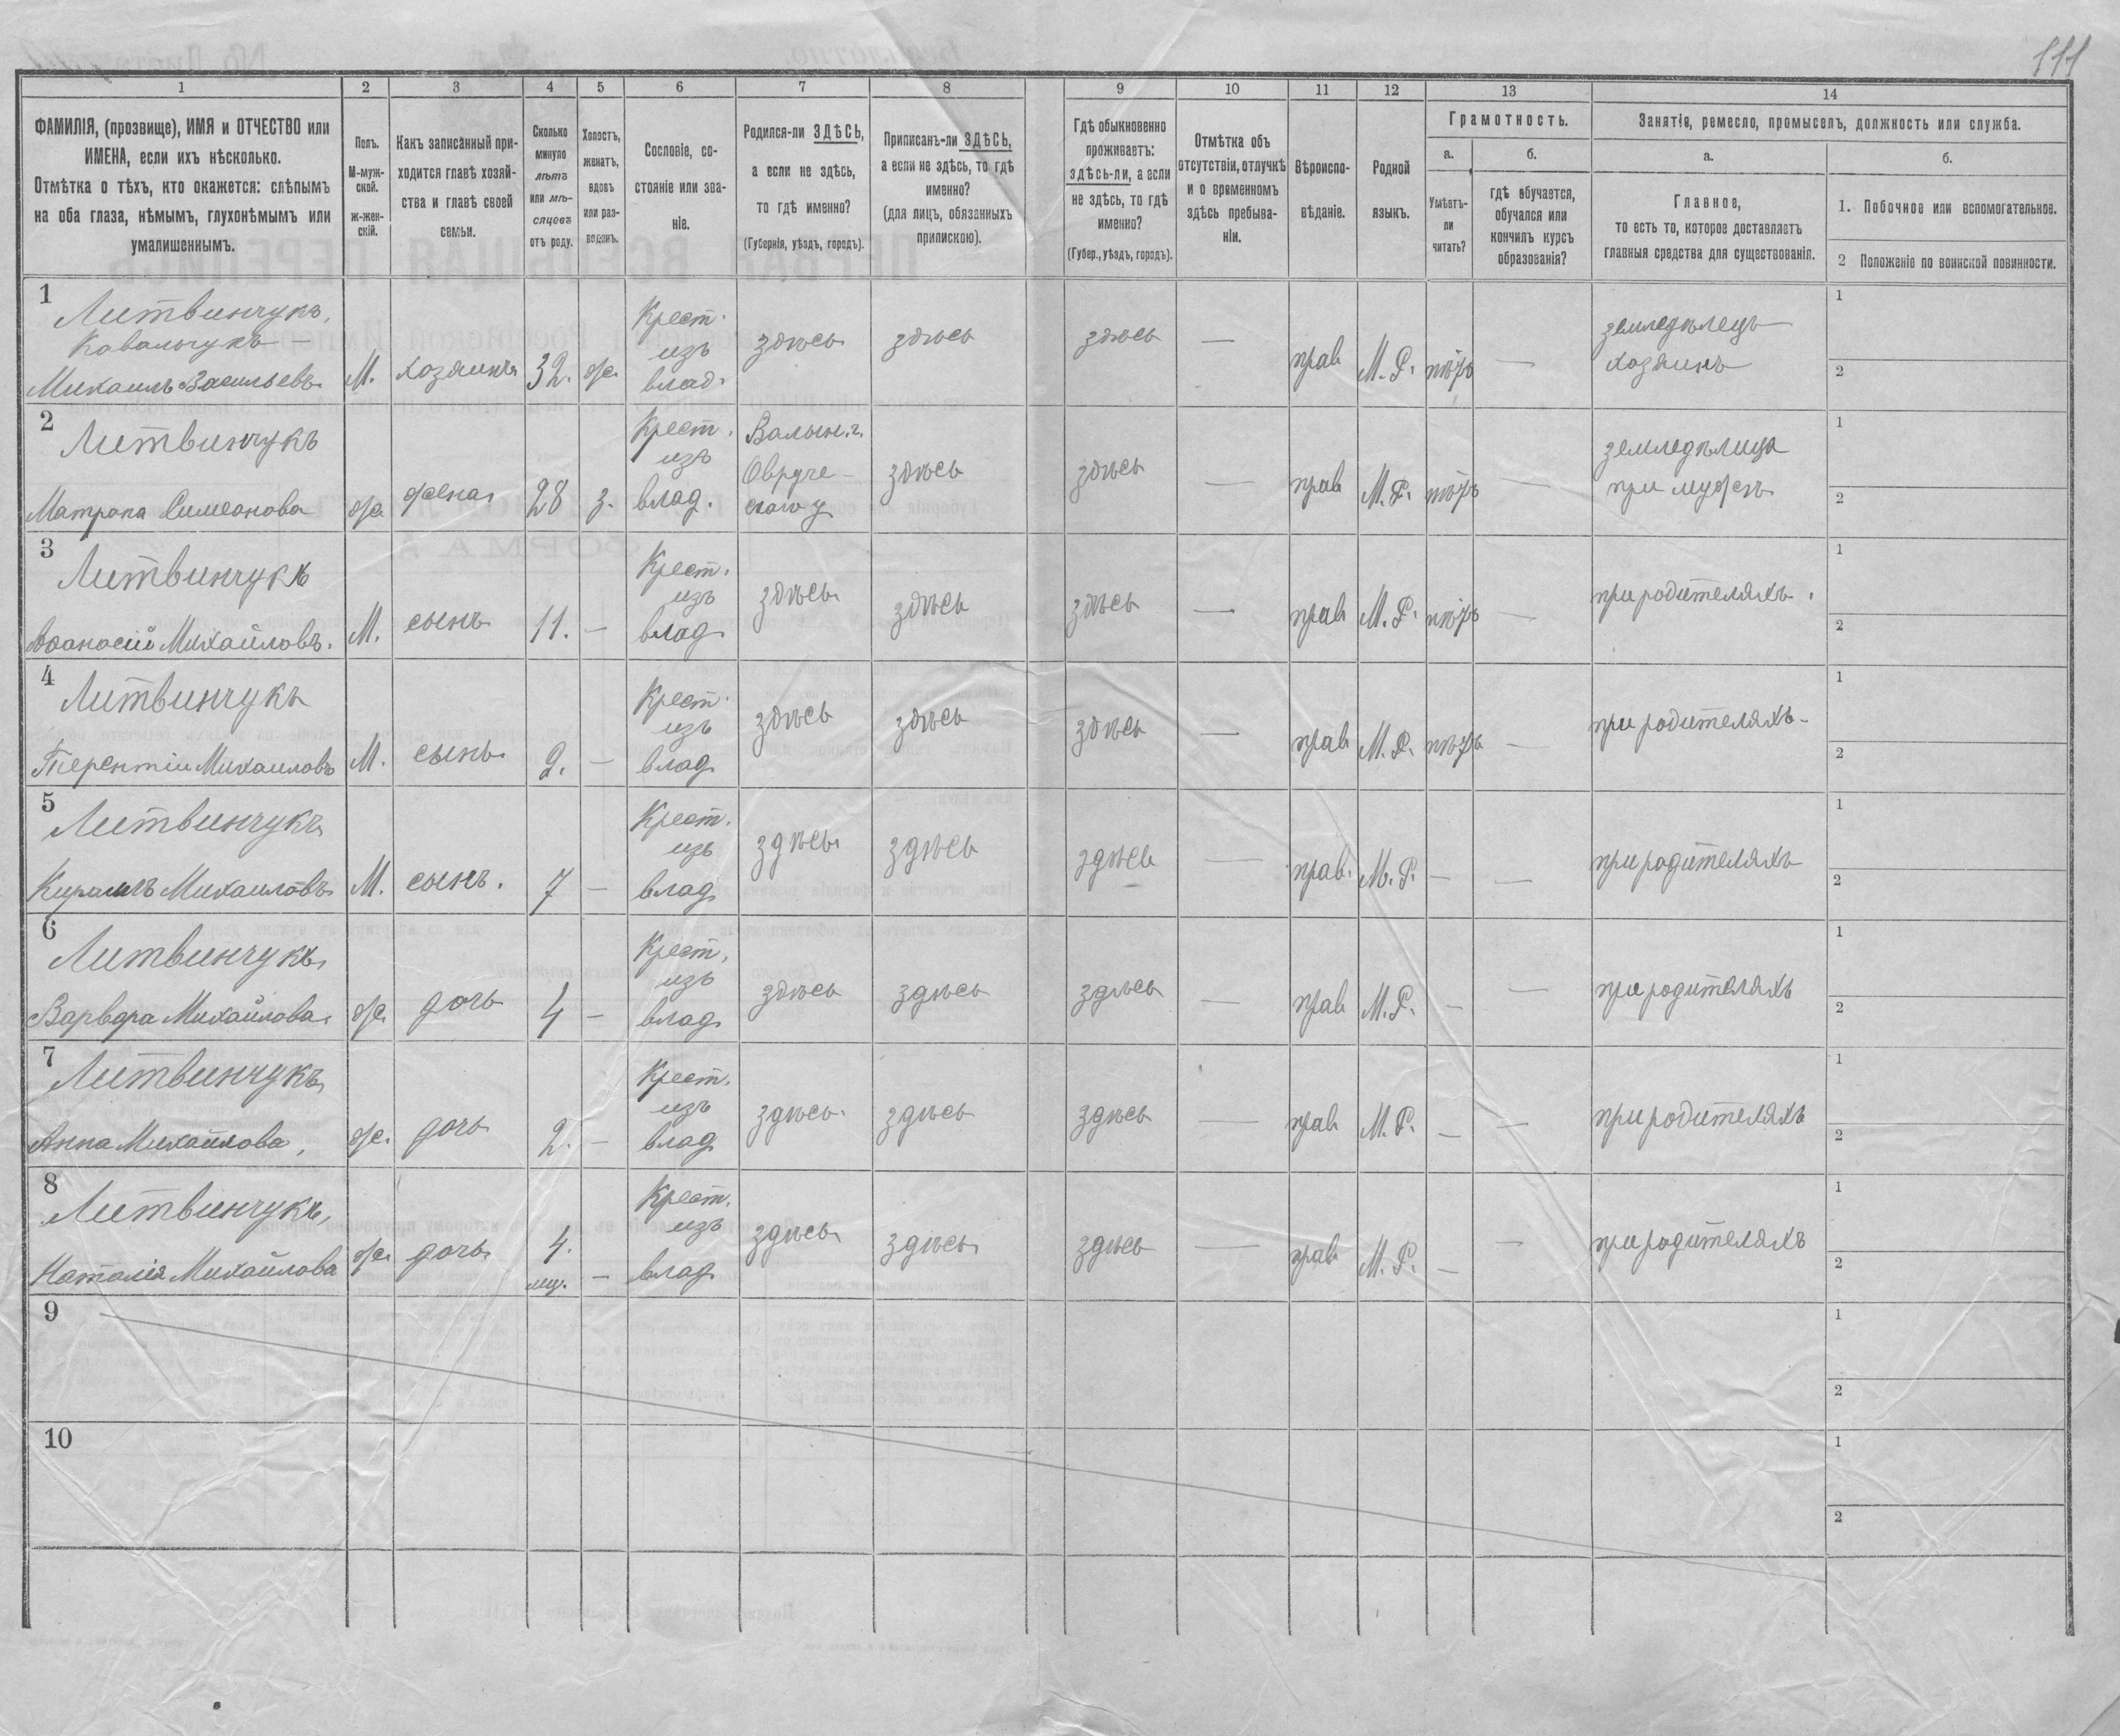 111
1 2 3 4 5 6 7 8 9 10 11 12 13 14
ФАМИЛІЯ, (прозвище), ИМЯ и ОТЧЕСТВО или
ИМЕНА, если ихъ нѣсколько.
Отмѣтка о тѣхъ, кто окажется: слѣпымъ
на оба глаза, нѣмымъ, глухонѣмымъ или
умалишеннымъ.
Полъ.
М-муж-
ской.
ж-жен-
скій.
Какъ записанный при-
ходится главѣ хозяй-
ства и главѣ своей
семьи.
Сколько
минуло
лѣтъ
или мѣ-
сяцевъ
отъ роду.
Холостъ,
женатъ,
вдовъ
или раз-
веденъ.
Сословіе, со-
стояніе или зва-
ніе.
Родился-ли ЗДѢСЬ,
а если не здѣсь,
то гдѣ именно?
(Губернія, уѣздъ, городъ).
Приписанъ-ли ЗДѢСЬ,
а если не здѣсь, то гдѣ
именно?
(для лицъ, обязанныхъ
припискою).
Гдѣ обыкновенно
проживаетъ:
здѣсь-ли, а если
не здѣсь, то гдѣ
именно?
(Губер., уѣздъ, городъ).
Отмѣтка объ
отсутствіи, отлучкѣ
и о временномъ
здѣсь пребыва-
ніи.
Вѣроиспо-
вѣданіе.
Родной
языкъ.
Грамотность.
а.
Умѣетъ-
ли
читать?
б.
гдѣ обучается,
обучался или
кончилъ курсъ
образованія?
Занятіе, ремесло, промыселъ, должность или служба.
а.
Главное,
то есть то, которое доставляетъ
главныя средства для существованія.
б.
1. Побочное или вспомогательное.
2 Положеніе по воинской повинности.
1
Литвинчукъ,
Ковальчукъ —
Михаилъ Васильевъ
М.
хозяинъ
32.
ж.
Крест.
изъ
влад.
здѣсь
здѣсь
здѣсь
—
прав
М. Р.
нѣтъ
—
земледѣлецъ
хозяинъ
1
2
2
Литвинчукъ
Матрона Симеонова
ж.
жена
28
з.
Крест.
изъ
влад.
Волын. г.
Овруче-
скаго у
здѣсь
здѣсь
—
прав
М. Р.
нѣтъ
—
земледѣлица
при мужѣ
1
2
3
Литвинчукъ
Афанасій Михайловъ.
М.
сынъ
11.
—
Крест.
изъ
влад
здѣсь
здѣсь
здѣсь
—
прав
М. Р.
нѣтъ
—
при родителяхъ.
1
2
4
Литвинчукъ
Терентій Михаиловъ
М.
сынъ
9.
—
Крест.
изъ
влад
здѣсь
здѣсь
здѣсь
—
прав
М. Р.
нѣтъ
—
при родителяхъ
1
2
5
Литвинчукъ
Кириллъ Михаиловъ
М.
сынъ.
7
—
Крест.
изъ
влад
здѣсь
здѣсь
здѣсь
—
прав.
М. Р.
—
—
при родителяхъ
1
2
6
Литвинчукъ
Варвара Михайлова
ж.
дочь
4
—
Крест.
изъ
влад
здѣсь
здѣсь
здѣсь
—
прав
М. Р.
—
—
при родителяхъ
1
2
7
Литвинчукъ
Анна Михайлова,
ж.
дочь
2.
—
Крест.
изъ
влад
здѣсь
здѣсь
здѣсь
—
прав
М. Р.
—
—
при родителяхъ
1
2
8
Литвинчукъ,
Наталія Михайлова
ж.
дочь
4.
мц.
—
Крест.
изъ
влад
здѣсь
здѣсь
здѣсь
—
прав
М. Р.
—
—
при родителяхъ
1
2
9
1
2
10
1
2